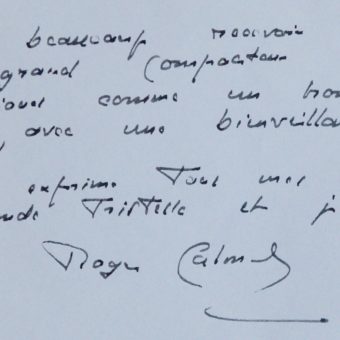 beaucoup recevoir
grand Compositeur
comme un hom
, avec une bienveillan
exprime Tous mes
nde Tristesse et j
Roger Calmel